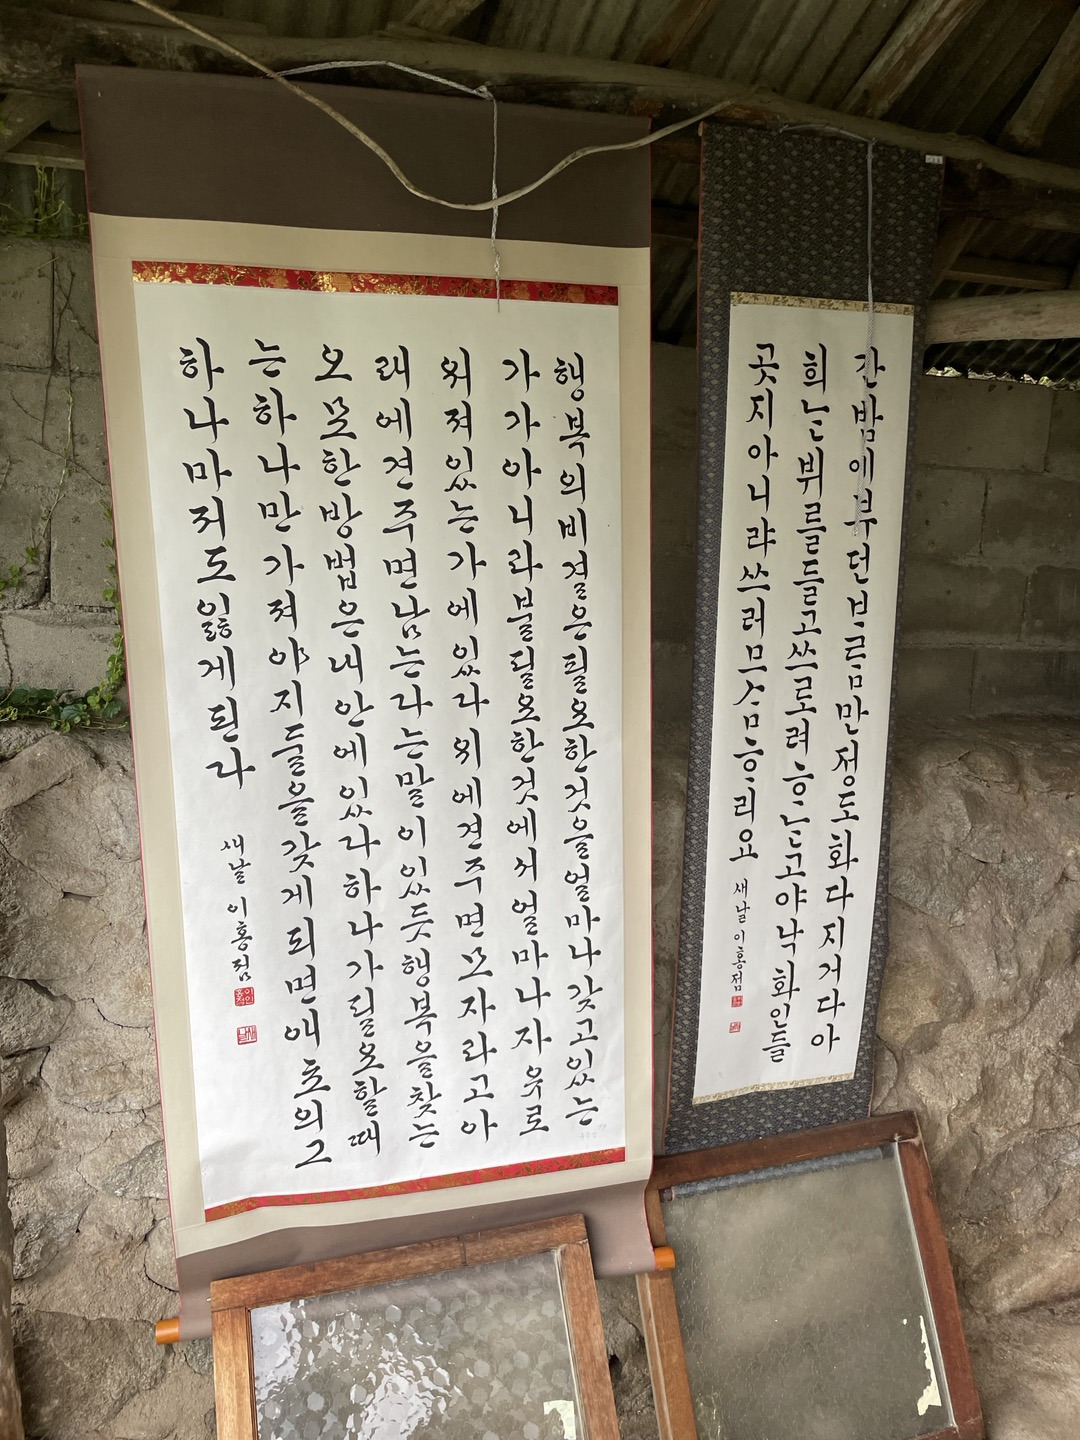 행복의비결은필요한것을얼마나갖고있는
가가아니라불필요한것에서얼마나자유로
워져있는가에있다위에견주면모자라고아
래에견주면남는다는말이있듯행복을찾는
오묘한방법은내안에있다하나가필요할때
는하나만가져야지둘을갖게되면애초의그
하나마저도잃게된다
새날 이홍점
간밤에부던ᄇᆞᄅᆞᆷ만정도화다지거다아
희ᄂᆞᆫ뷔를들고쓰로려ᄒᆞᄂᆞᆫ고야낙화인들
곳지아니랴쓰러므ᄉᆞᆷᄒᆞ리요
새날이홍점